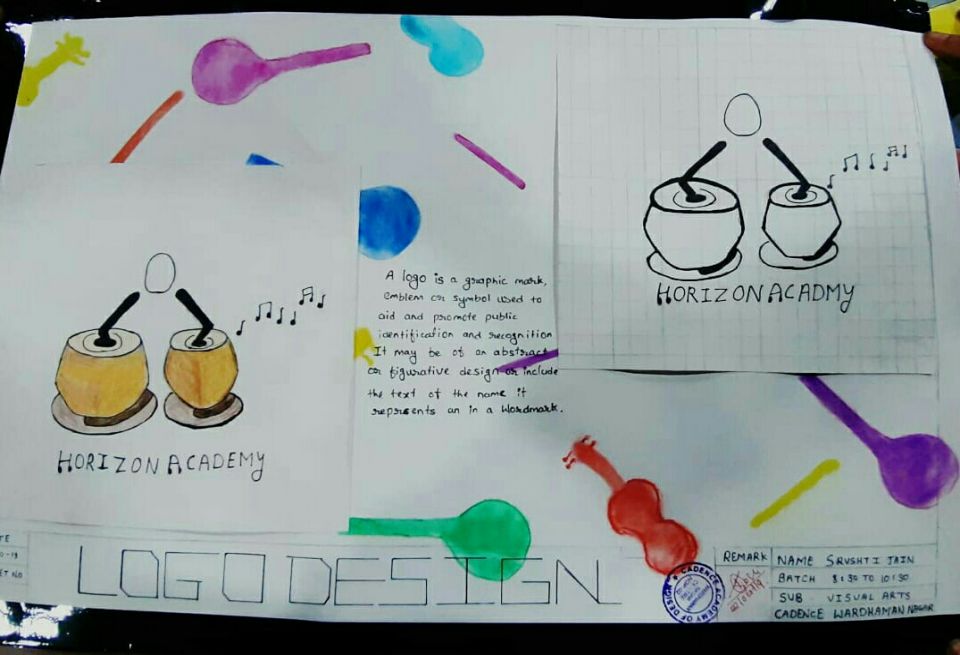 HORIZON ACADMY
A logo is a graphic mark,
emblem or symbol used to
aid and promote public
identification and recognition
It may be of an abstract
or figurative design or include
the text of the name it
represents an in a Wordmark.
HORIZON ACADEMY
LOGO DESIGN
REMARK
NAME SRUSHTI JAIN
BATCH 8:30 TO 10:30
SUB VISUAL ARTS
CADENCE WARDHAMAN NAGAR
CADENCE ACADEMY OF DESIGN